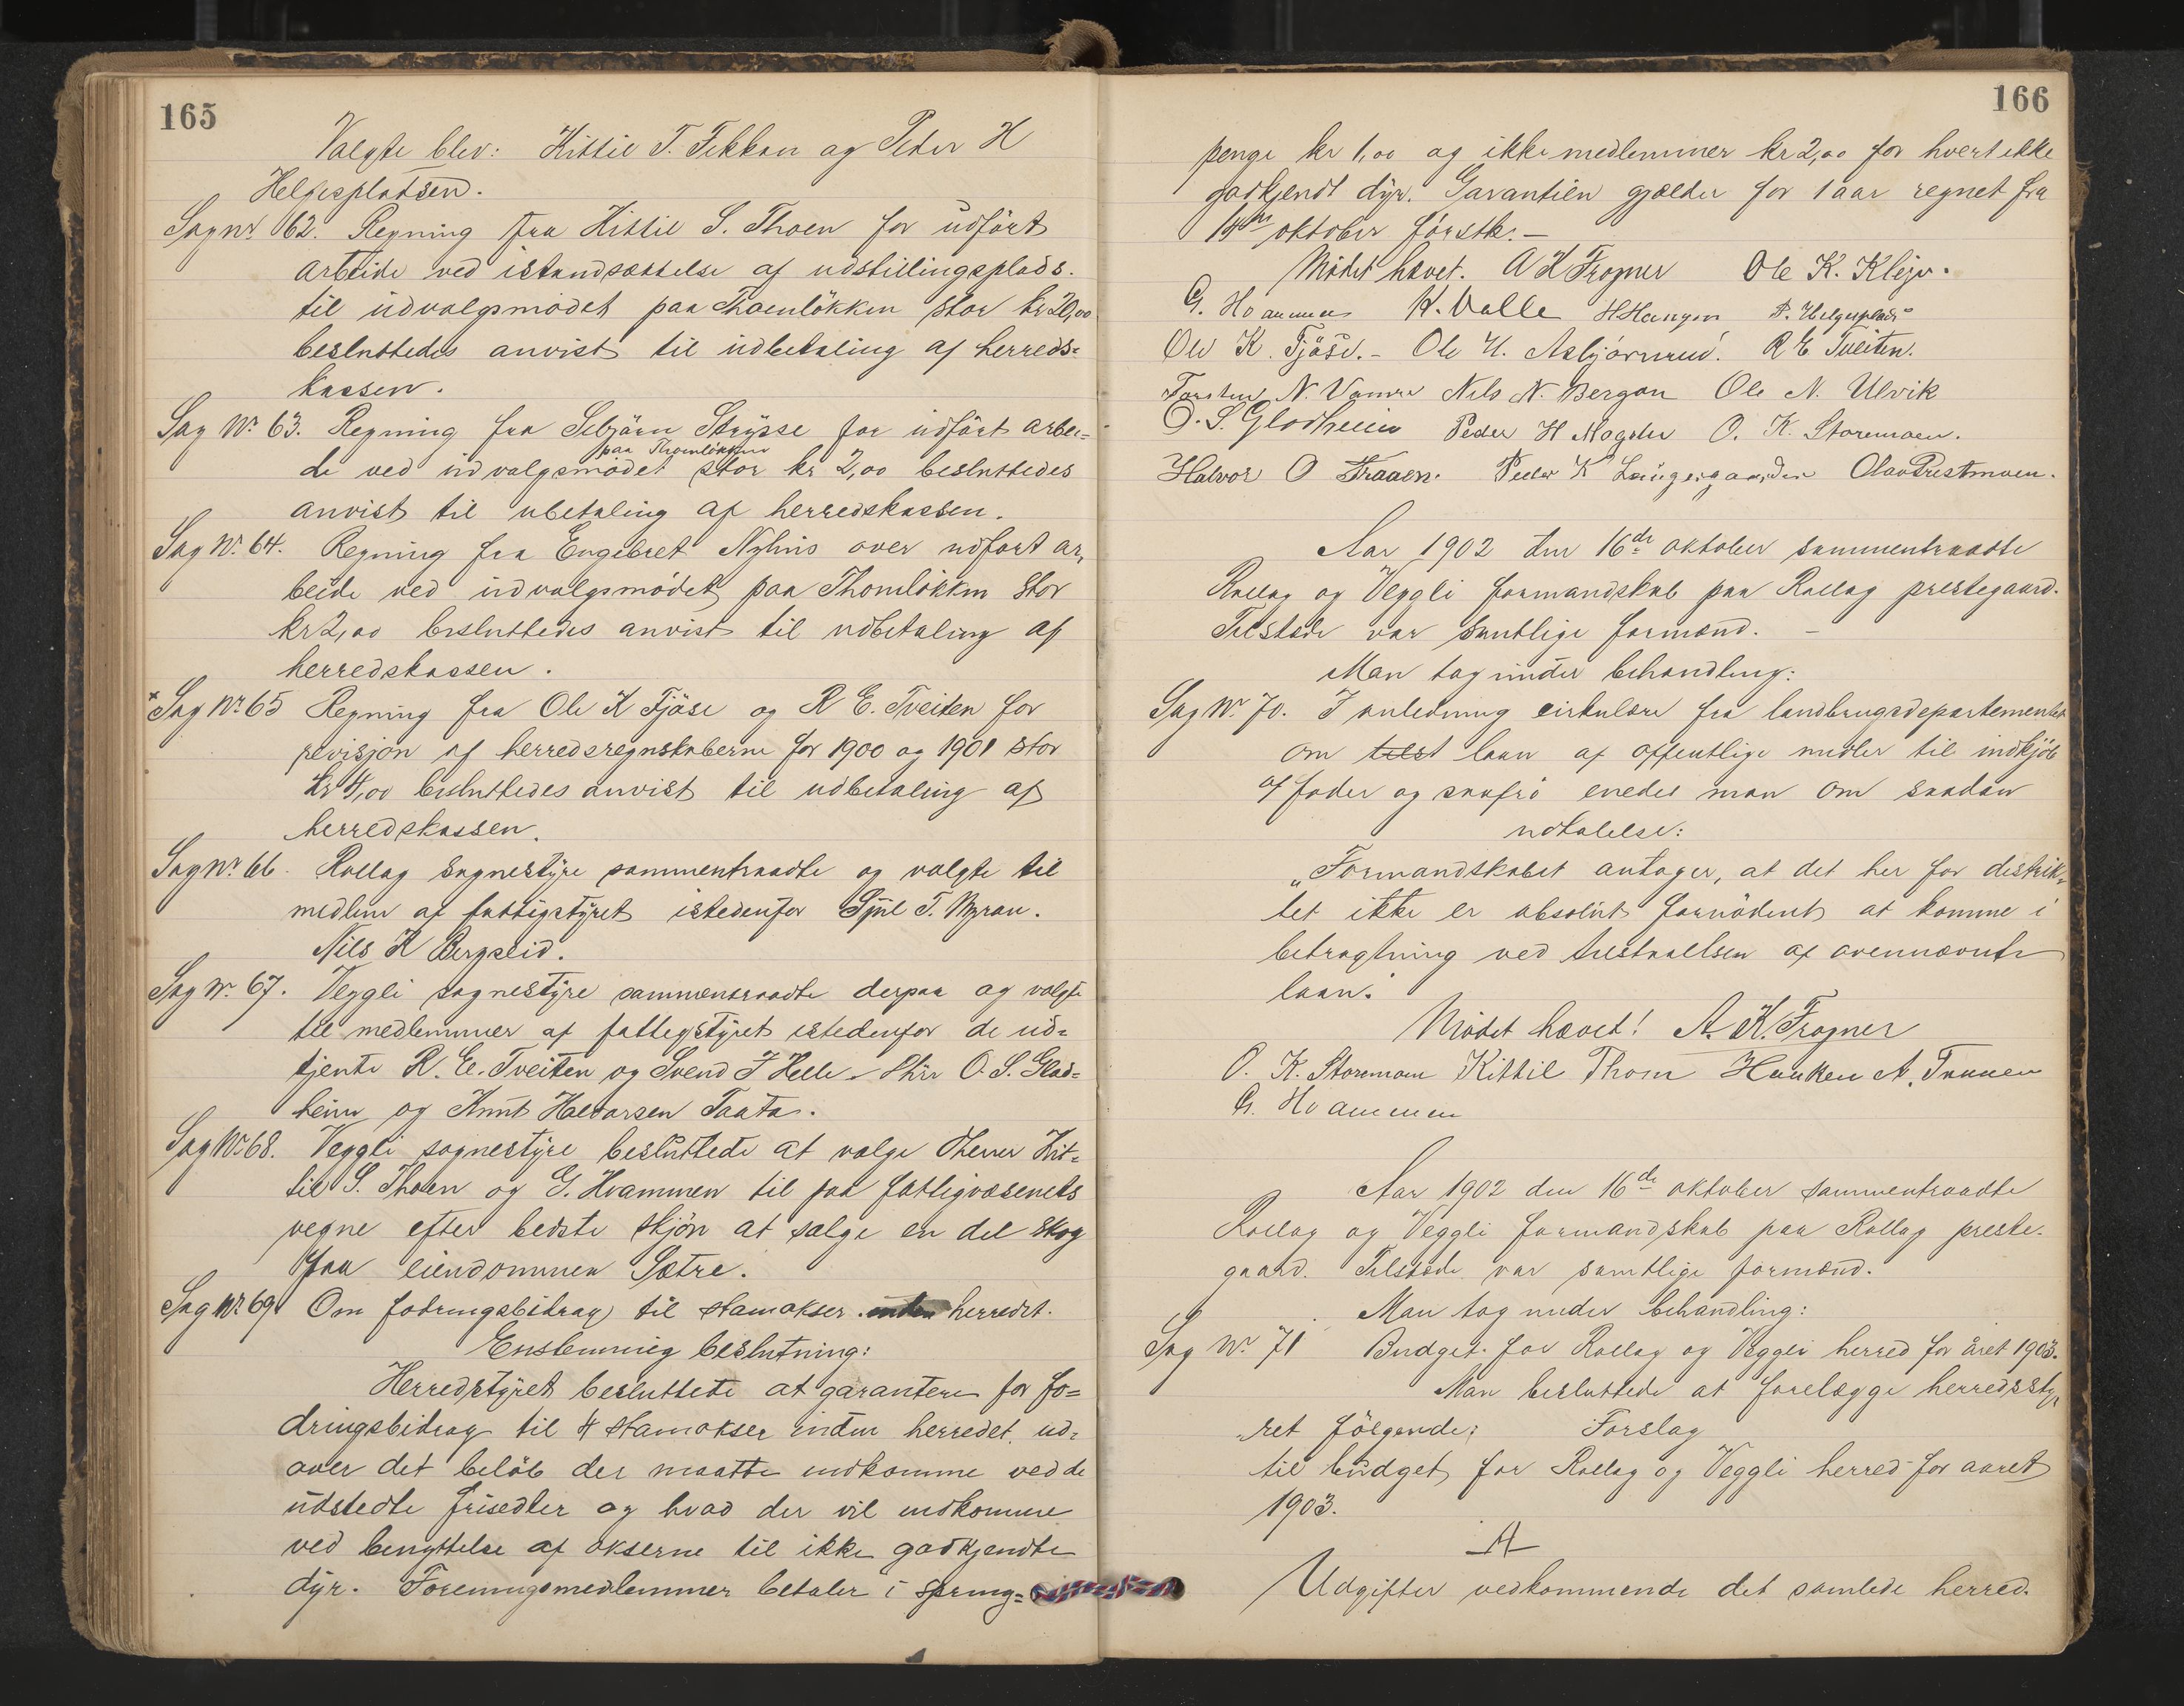 165
Valgte blev: Kittil T. Fekkan og Peder H
Helgesplatsen.
Sag nr 62. Regning fra Kittil S. Thoen for udfört
arbeide ved istandsættelse af udstillingsplads.
til udvalgsmödet paa Thoenlökken stor kr 20,00
besluttedes anvist til udbetaling af herreds=
kassen.
Sag Nr. 63. Regning fra Sebjörn Strysse for udfört arbei=
paa Thoenlökken
de ved udvalgsmödet stor kr 2,00 besluttedes
anvist til ubetaling af herredskassen.
Sag Nr. 64. Regning fra Engebret Nyhus over udfört ar,
beide ved udvalgsmödet paa Thoenlökken stor
kr 2,00 besluttedes anvist til udbetaling af
herredskassen.
× Sag Nr. 65 Regning fra Ole K Fjöse og R E. Tveiten for
revisjon af herredsregnskaberne for 1900 og 1901 stor
kr 4,00 besluttedes anvist til udbetaling af
herredskassen.
Sag Nr. 66. Rollag sognestyre sammentraadte og valgte til
medlem af fattigstyret istedenfor T. Myran.
Nils K Bergseid.
Sag Nr. 67. Veggli sognestyre sammentraadte derpaa og valgte
til medlemmer af fattigstyret istedenfor de ud=
tjente R. E. Tveiten og Svend J Helle. O. S. Glad=
heim og Knut Halvorsen Taata.
Sag Nr. 68. Veggli sognestyre besluttede at valge Herrer Kit=
til S. Thoen og G. Hvammen til paa fattigvæsenets
vegne efter bedste skjön at salge en del skog
fra eiendommen Sætre.
Sag Nr. 69 Om fodringsbidrag til stamokser inden herredet.
Enstemmig beslutning:
Herredstyret besluttete at garantere for fo=
dringsbidrag til 4 stamokser inden herredet, ud=
over det belöb der maatte indkomme ved de
udstedte frisedler og hvad der vil indkomme
ved benyttelse af okserne til ikke godkjendte
dyr. Foreningsmedlemmer betaler i spring=
166
penge kr 1,00 og ikke medlemmer kr 2,00 for hvert ikke
godkjendt dyr. Garantien gjælder for 1 aar regnet fra
oktober förstk. –
Mödet hævet. A K Frogner Ole K. Kleiv.
G. Hvammen K. Valle P. Helgesplads
Ole K. Fjöse. – Ole H. Asbjörnrud. R E Tveiten.
Torsten N. Vamre Nils N. Bergan Ole N. Ulvik
O. S. Gladheim Peder H Mogslee O. K. Storemoen.
Halvor O Traaen. Peder K Olav Prestmoen.
Aar 1902 den 16de oktober sammentraadte
Rollag og Veggli formandskab paa Rollag prestegaard.
Tilstede var samtlige formænd. –
Man tog under behandling:
Sag Nr. 70. I anledning cirkulære fra landbrugsdepartementet
om tilst laan af offentlige midler til indkjöb
af foder og saafrö enedes man om saadan
udtalelse:
„Formandskabet antager, at det her for distrik=
tet ikke er absolut fornödent at komme i
betragtning ved tilstaaelsen af ovennævnte
laan."
Mödet hævet! A. K. Frogner
O. K. Storemoen Kittil Thoen Haaken A. Traaen
G. Hvammen
Aar 1902 den 16de oktober sammentraadte
Rollag og Veggli formandskab paa Rollag preste-
gaard. Tilstede var samtlige formænd.
Man tog under behandling:
Sag Nr. 71 Budget for Rollag og Veggli herred for året 1903.
Man besluttede at forelægge herredssty,
ret fölgende: Forslag
til budget for Rollag og Veggli herred for aaret
1903.
A
Udgifter vedkommende det samlede herred.